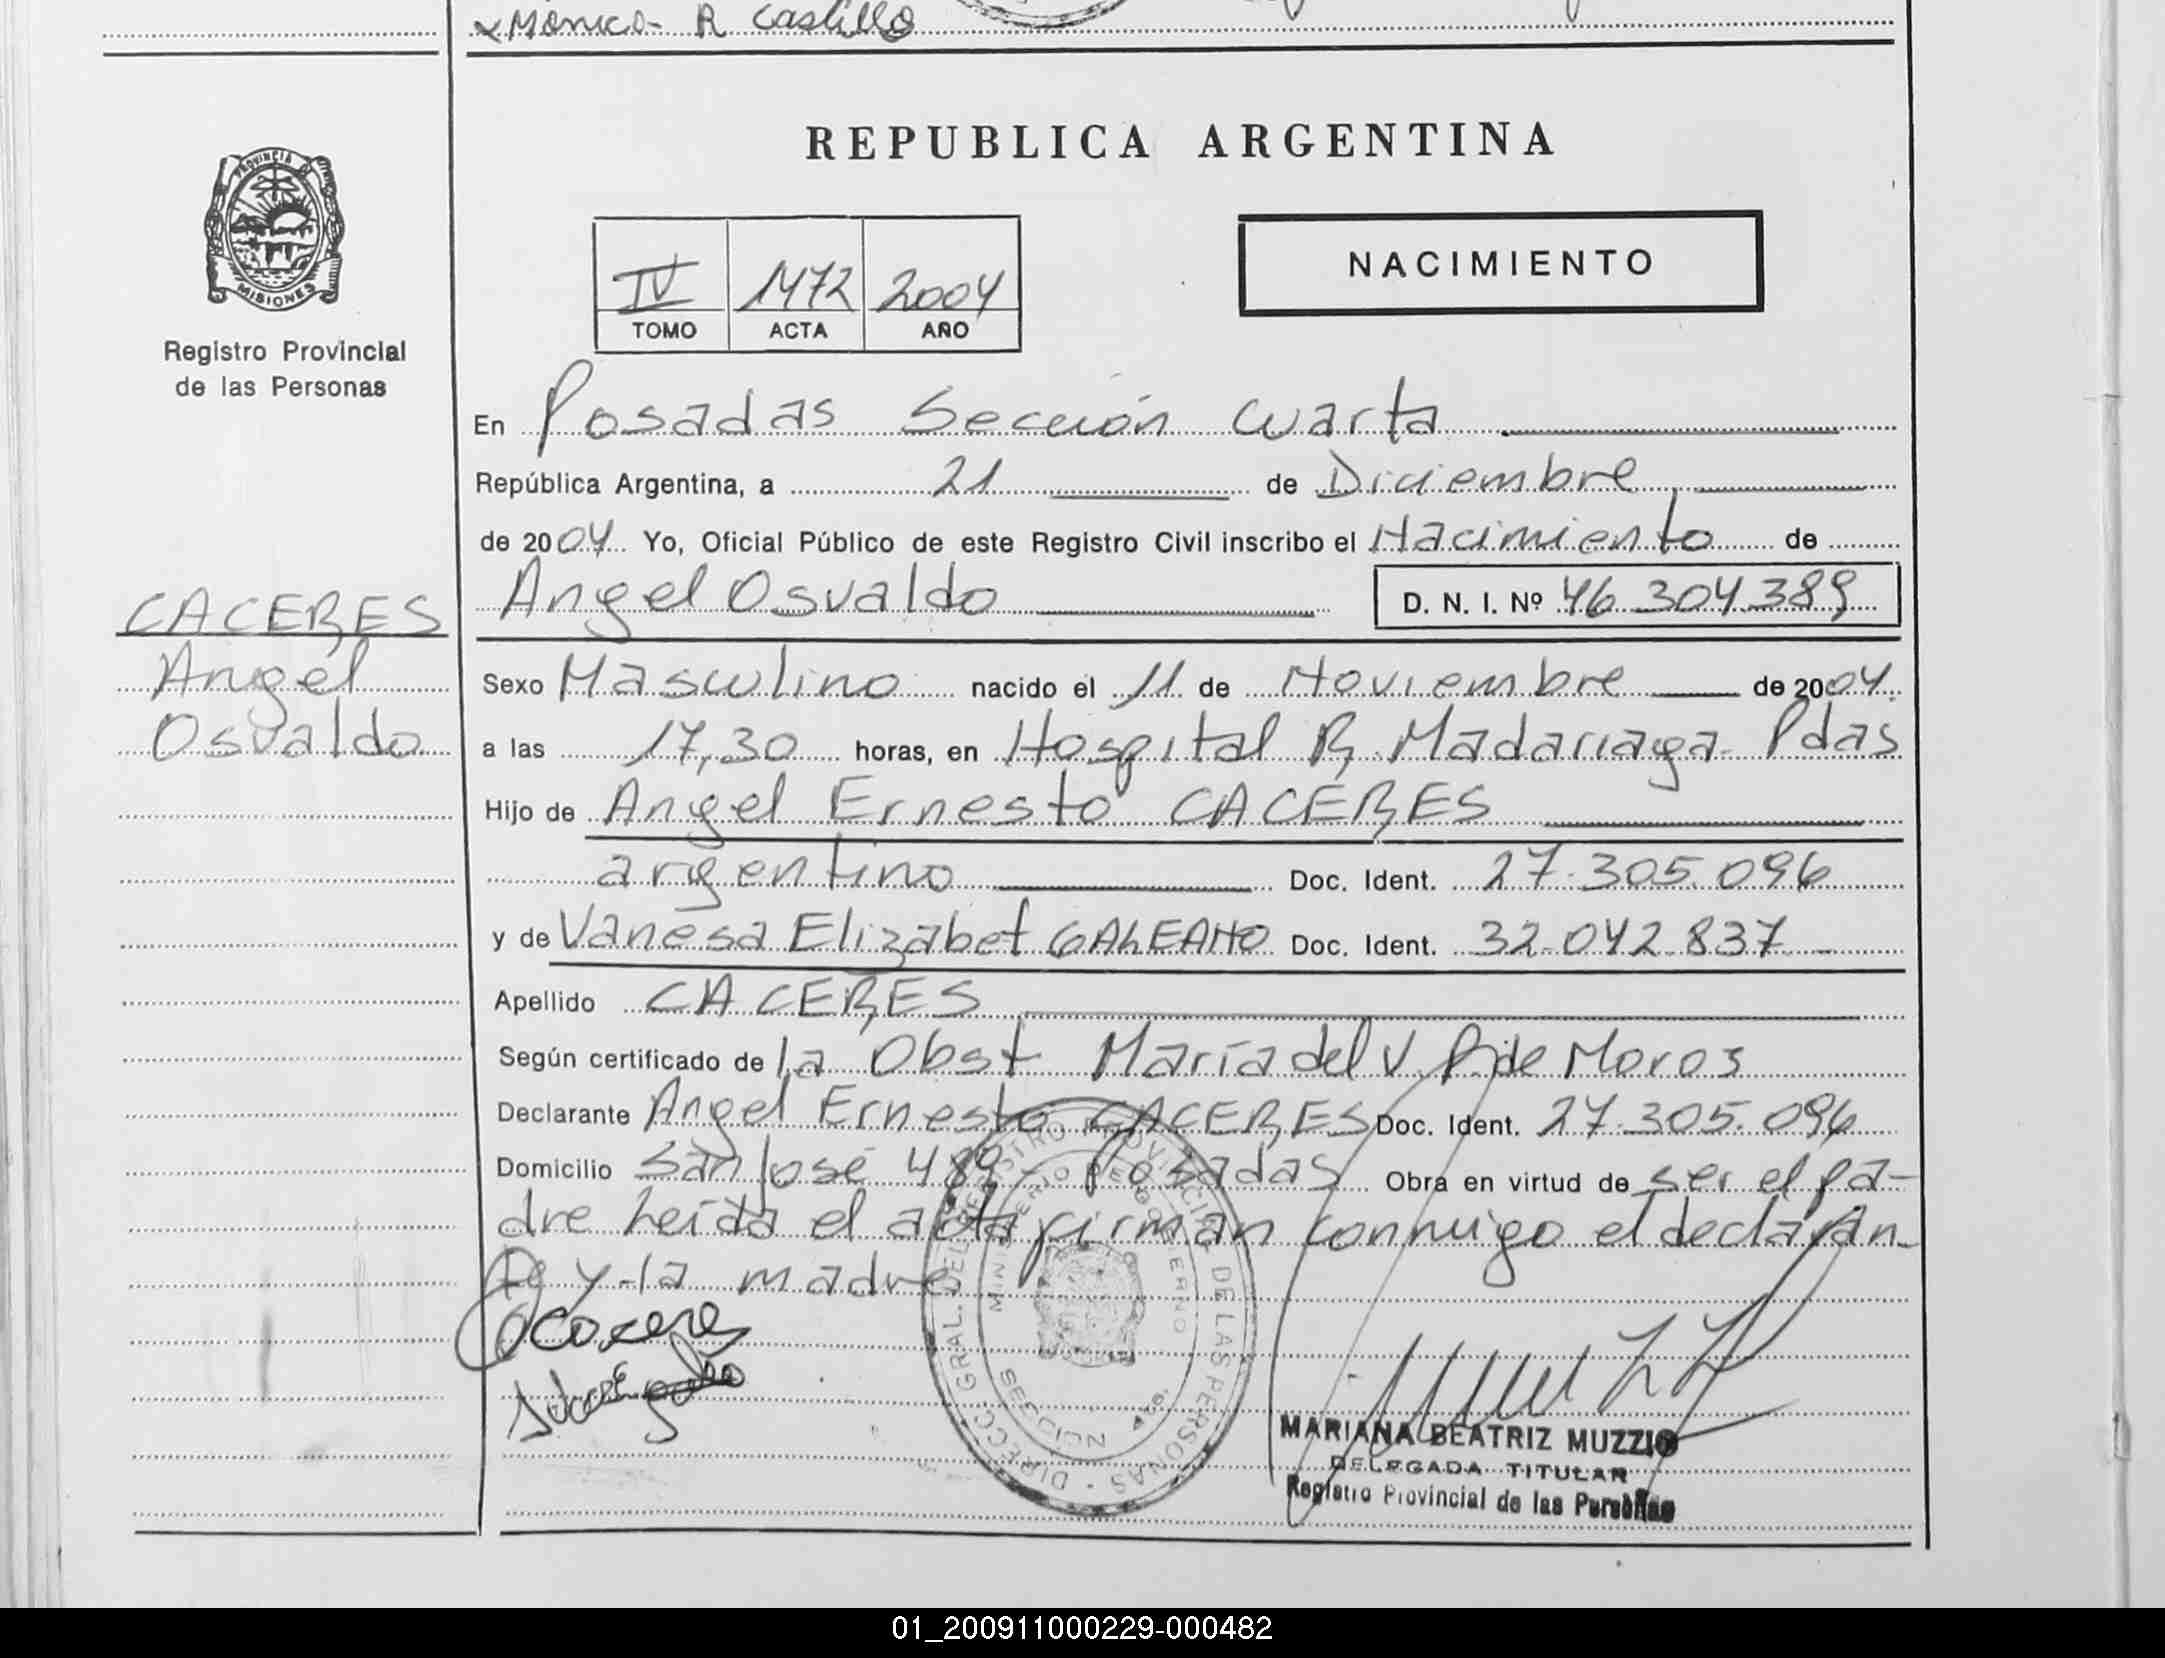 Mónica R Castillo
REPUBLICA ARGENTINA
PROVINCIA DE
MISIONES
Registro Provincial
de las Personas
NACIMIENTO
IV 1472 2004
TOMO ACTA AÑO
En Posadas Sección Cuarta
República Argentina, a 21 de Diciembre
de 2004 Yo, Oficial Público de este Registro Civil inscribo el Nacimiento de
Angel Osvaldo D. N. I. Nº 46.304.389
CACERES
Angel
Osvaldo
Sexo Masculino nacido el 11 de Noviembre de 2004.
a las 17,30 horas, en Hospital R. Madariaga- Pdas
Hijo de Angel Ernesto CACERES
argentino Doc. Ident. 27.305.096
y de Vanesa Elizabet GALEANO Doc. Ident. 32.042.837
Apellido CACERES
Según certificado de la Obst María del V. R. de Moros
Declarante Angel Ernesto CACERES Doc. Ident. 27.305.096
Domicilio San José 489- Posadas Obra en virtud de ser el pa-
dre Leída el acta firman conmigo el declaran-
te y la madre
DIRECC. GRAL. DEL REGISTRO PROVINCIAL DE LAS PERSONAS
MINISTERIO DE GOBIERNO
SECCION 4ta.
MARIANA BEATRIZ MUZZIO
DELEGADA TITULAR
Registro Provincial de las Personas
01_200911000229-000482